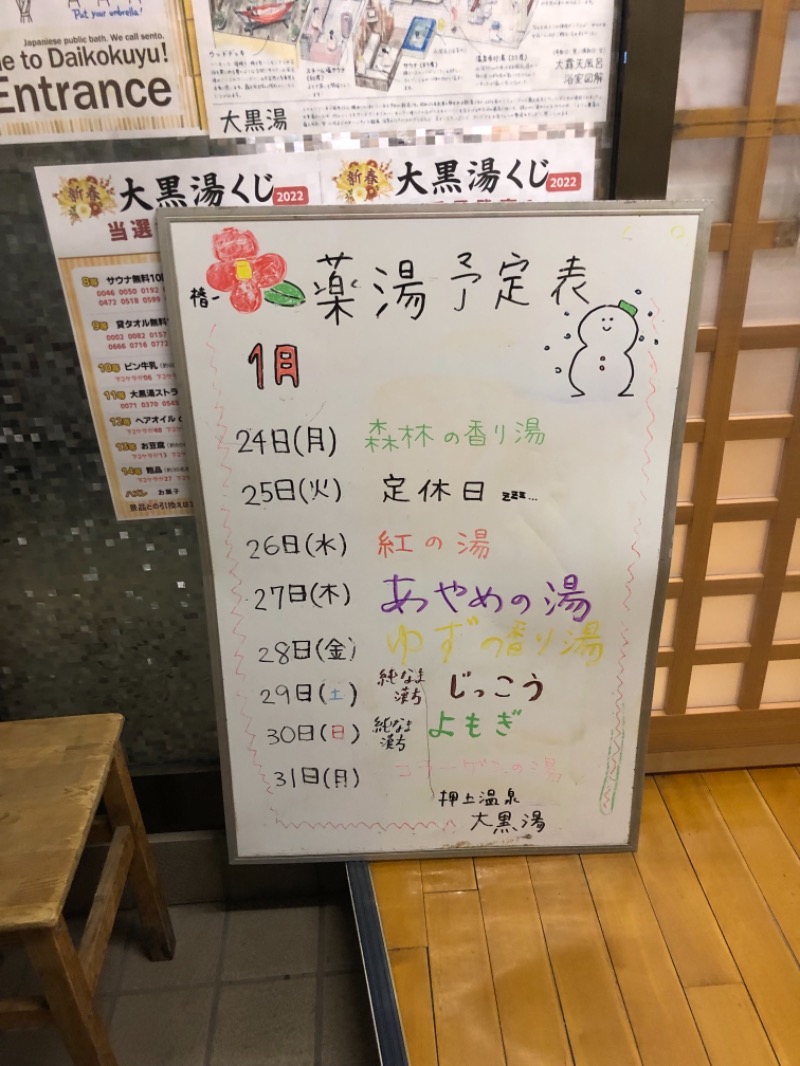 Put your umbrella!
Japanese public bath. We call sento.
e to Daikokuyu!
Entrance
大黒湯
大露天風呂
浴室図解
新春 大黒湯くじ 2022
当選
新春 大黒湯くじ 2022
8等 サウナ無料10
0046 0050 0192
0473 0518 0599
9等 貸タオル無料
0003 0082 0157
0666 0716 0772
10等 ビン牛乳
下2ケタが06
11等 大黒湯ストラ
0071 0370 0545
12等 ヘアオイル
13等 お豆腐
14等 粗品
お菓子
景品との引換えは
椿→
薬湯予定表
1月
24日(月) 森林の香り湯
25日(火) 定休日 zzz...
26日(水) 紅の湯
27日(木) あやめの湯
28日(金) ゆずの香り湯
29日(土) 純なま漢ち じっこう
30日(日) 純なま漢ち よもぎ
31日(月) コラーゲンの湯
押上温泉
大黒湯